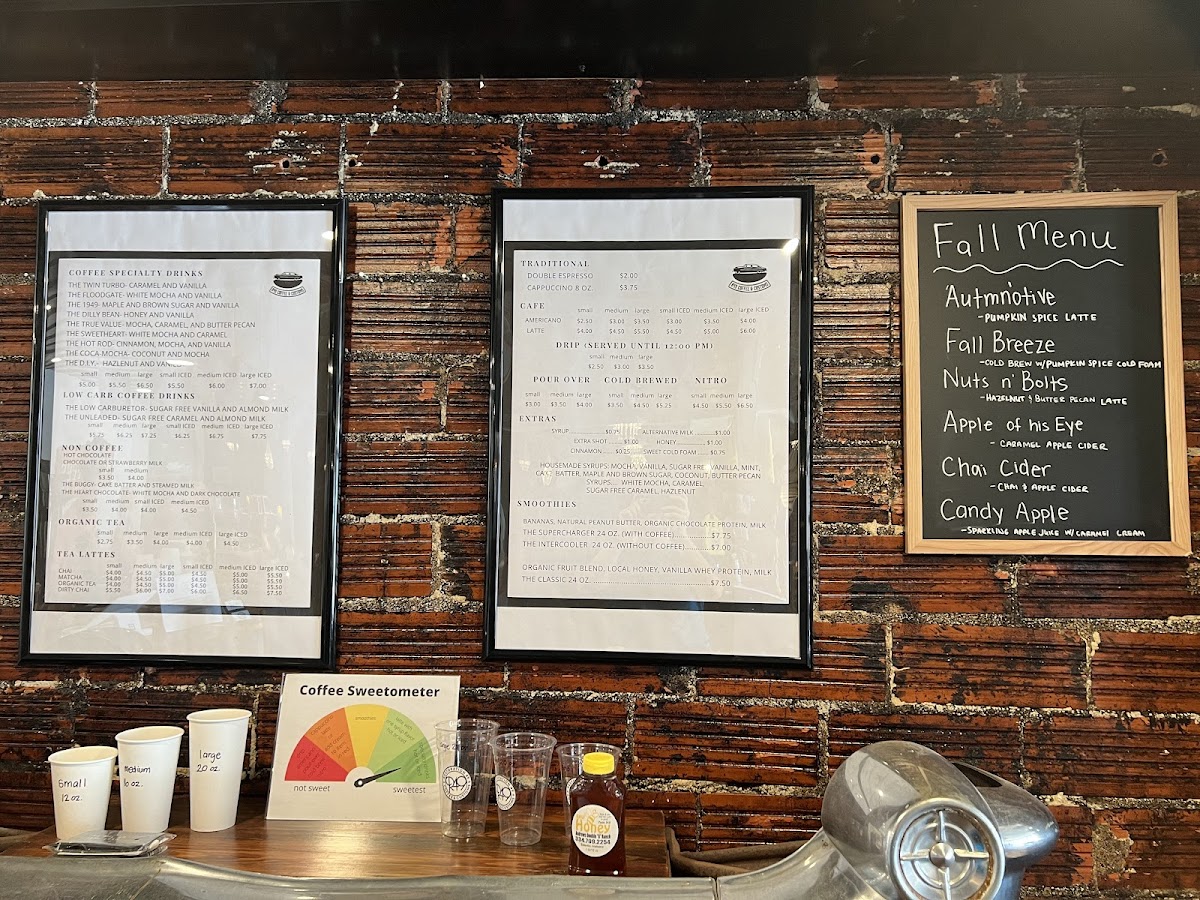 COFFEE SPECIALTY DRINKS
THE TWIN TURBO- CARAMEL AND VANILLA
THE FLOODGATE- WHITE MOCHA AND VANILLA
THE 1949- MAPLE AND BROWN SUGAR AND VANILLA
THE DILLY BEAN- HONEY AND VANILLA
THE TRUE VALUE- MOCHA, CARAMEL, AND BUTTER PECAN
THE SWEETHEART- WHITE MOCHA AND CARAMEL
THE HOT ROD- CINNAMON, MOCHA, AND VANILLA
THE COCA-MOCHA- COCONUT AND MOCHA
THE D.I.Y.- HAZLENUT AND VANILLA
small medium large small ICED medium ICED large ICED
$5.00 $5.50 $6.50 $5.50 $6.00 $7.00
LOW CARB COFFEE DRINKS
THE LOW CARBURETOR- SUGAR FREE VANILLA AND ALMOND MILK
THE UNLEADED- SUGAR FREE CARAMEL AND ALMOND MILK
small medium large small ICED medium ICED large ICED
$5.75 $6.25 $7.25 $6.25 $6.75 $7.75
NON COFFEE
HOT CHOCOLATE
CHOCOLATE OR STRAWBERRY MILK
small medium
$3.50 $4.00
THE BUGGY- CAKE BATTER AND STEAMED MILK
THE HEART CHOCOLATE- WHITE MOCHA AND DARK CHOCOLATE
small medium small ICED medium ICED
$3.50 $4.00 $4.00 $4.50
ORGANIC TEA
small medium large small ICED medium ICED large ICED
$2.75 $3.50 $4.00 $4.00 $4.50
TEA LATTES
small medium large small ICED medium ICED large ICED
CHAI $4.00 $4.50 $5.00 $4.50 $5.00 $5.50
MATCHA $4.00 $4.50 $5.00 $4.50 $5.00 $5.50
ORGANIC TEA $4.00 $4.50 $5.00 $4.50 $5.00 $5.50
DIRTY CHAI $5.00 $6.00 $7.00 $6.00 $6.50 $7.50
TRADITIONAL
DOUBLE ESPRESSO $2.00
CAPPUCCINO 8 OZ. $3.75
CAFE
small medium large small ICED medium ICED large ICED
AMERICANO $2.50 $3.00 $3.50 $3.00 $3.50 $4.00
LATTE $4.00 $4.50 $5.50 $4.50 $5.00 $6.00
DRIP (SERVED UNTIL 12:00 PM)
small medium large
$2.50 $3.00 $3.50
POUR OVER COLD BREWED NITRO
small medium large small medium large small medium large
$3.00 $3.50 $4.00 $3.50 $4.50 $5.25 $4.50 $5.50 $6.50
EXTRAS
SYRUP $0.75 ALTERNATIVE MILK $1.00
EXTRA SHOT $1.00 HONEY $1.00
CINNAMON $0.25 SWEET COLD FOAM $0.75
HOUSEMADE SYRUPS: MOCHA, VANILLA, SUGAR FREE VANILLA, MINT,
CAKE BATTER, MAPLE AND BROWN SUGAR, COCONUT, BUTTER PECAN
SYRUPS... WHITE MOCHA, CARAMEL,
SUGAR FREE CARAMEL, HAZLENUT
SMOOTHIES
BANANAS, NATURAL PEANUT BUTTER, ORGANIC CHOCOLATE PROTEIN, MILK
THE SUPERCHARGER 24 OZ. (WITH COFFEE) $7.75
THE INTERCOOLER 24 OZ. (WITHOUT COFFEE) $7.00
ORGANIC FRUIT BLEND, LOCAL HONEY, VANILLA WHEY PROTEIN, MILK
THE CLASSIC 24 OZ. $7.50
Fall Menu
'Autmn'otive
-PUMPKIN SPICE LATTE
Fall Breeze
-COLD BREW W/PUMPKIN SPICE COLD FOAM
Nuts n' Bolts
-HAZELNUT & BUTTER PECAN LATTE
Apple of his Eye
- CARAMEL APPLE CIDER
Chai Cider
- CHAI & APPLE CIDER
Candy Apple
-SPARKLING APPLE JUICE W/CARAMEL CREAM
Coffee Sweetometer
not sweet
sweetest
small
12 oz.
medium
16 oz.
large
20 oz.
Honey
334.799.2254